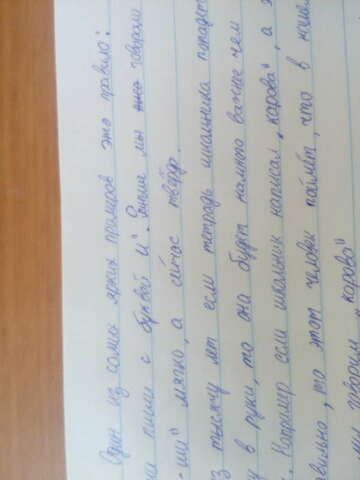 Один из самых ярких примеров это правило:
пиши с буквой и". Раньше мы говорили
ши" мягко, а сейчас твёрдо.
з тысячу лет если тетрадь школьника попадёт
у в руки, то она будет намного важнее чем
. Например если школьник написал „карова", а
авильно, то этот человек поймёт, что в наше
говорили „карова"